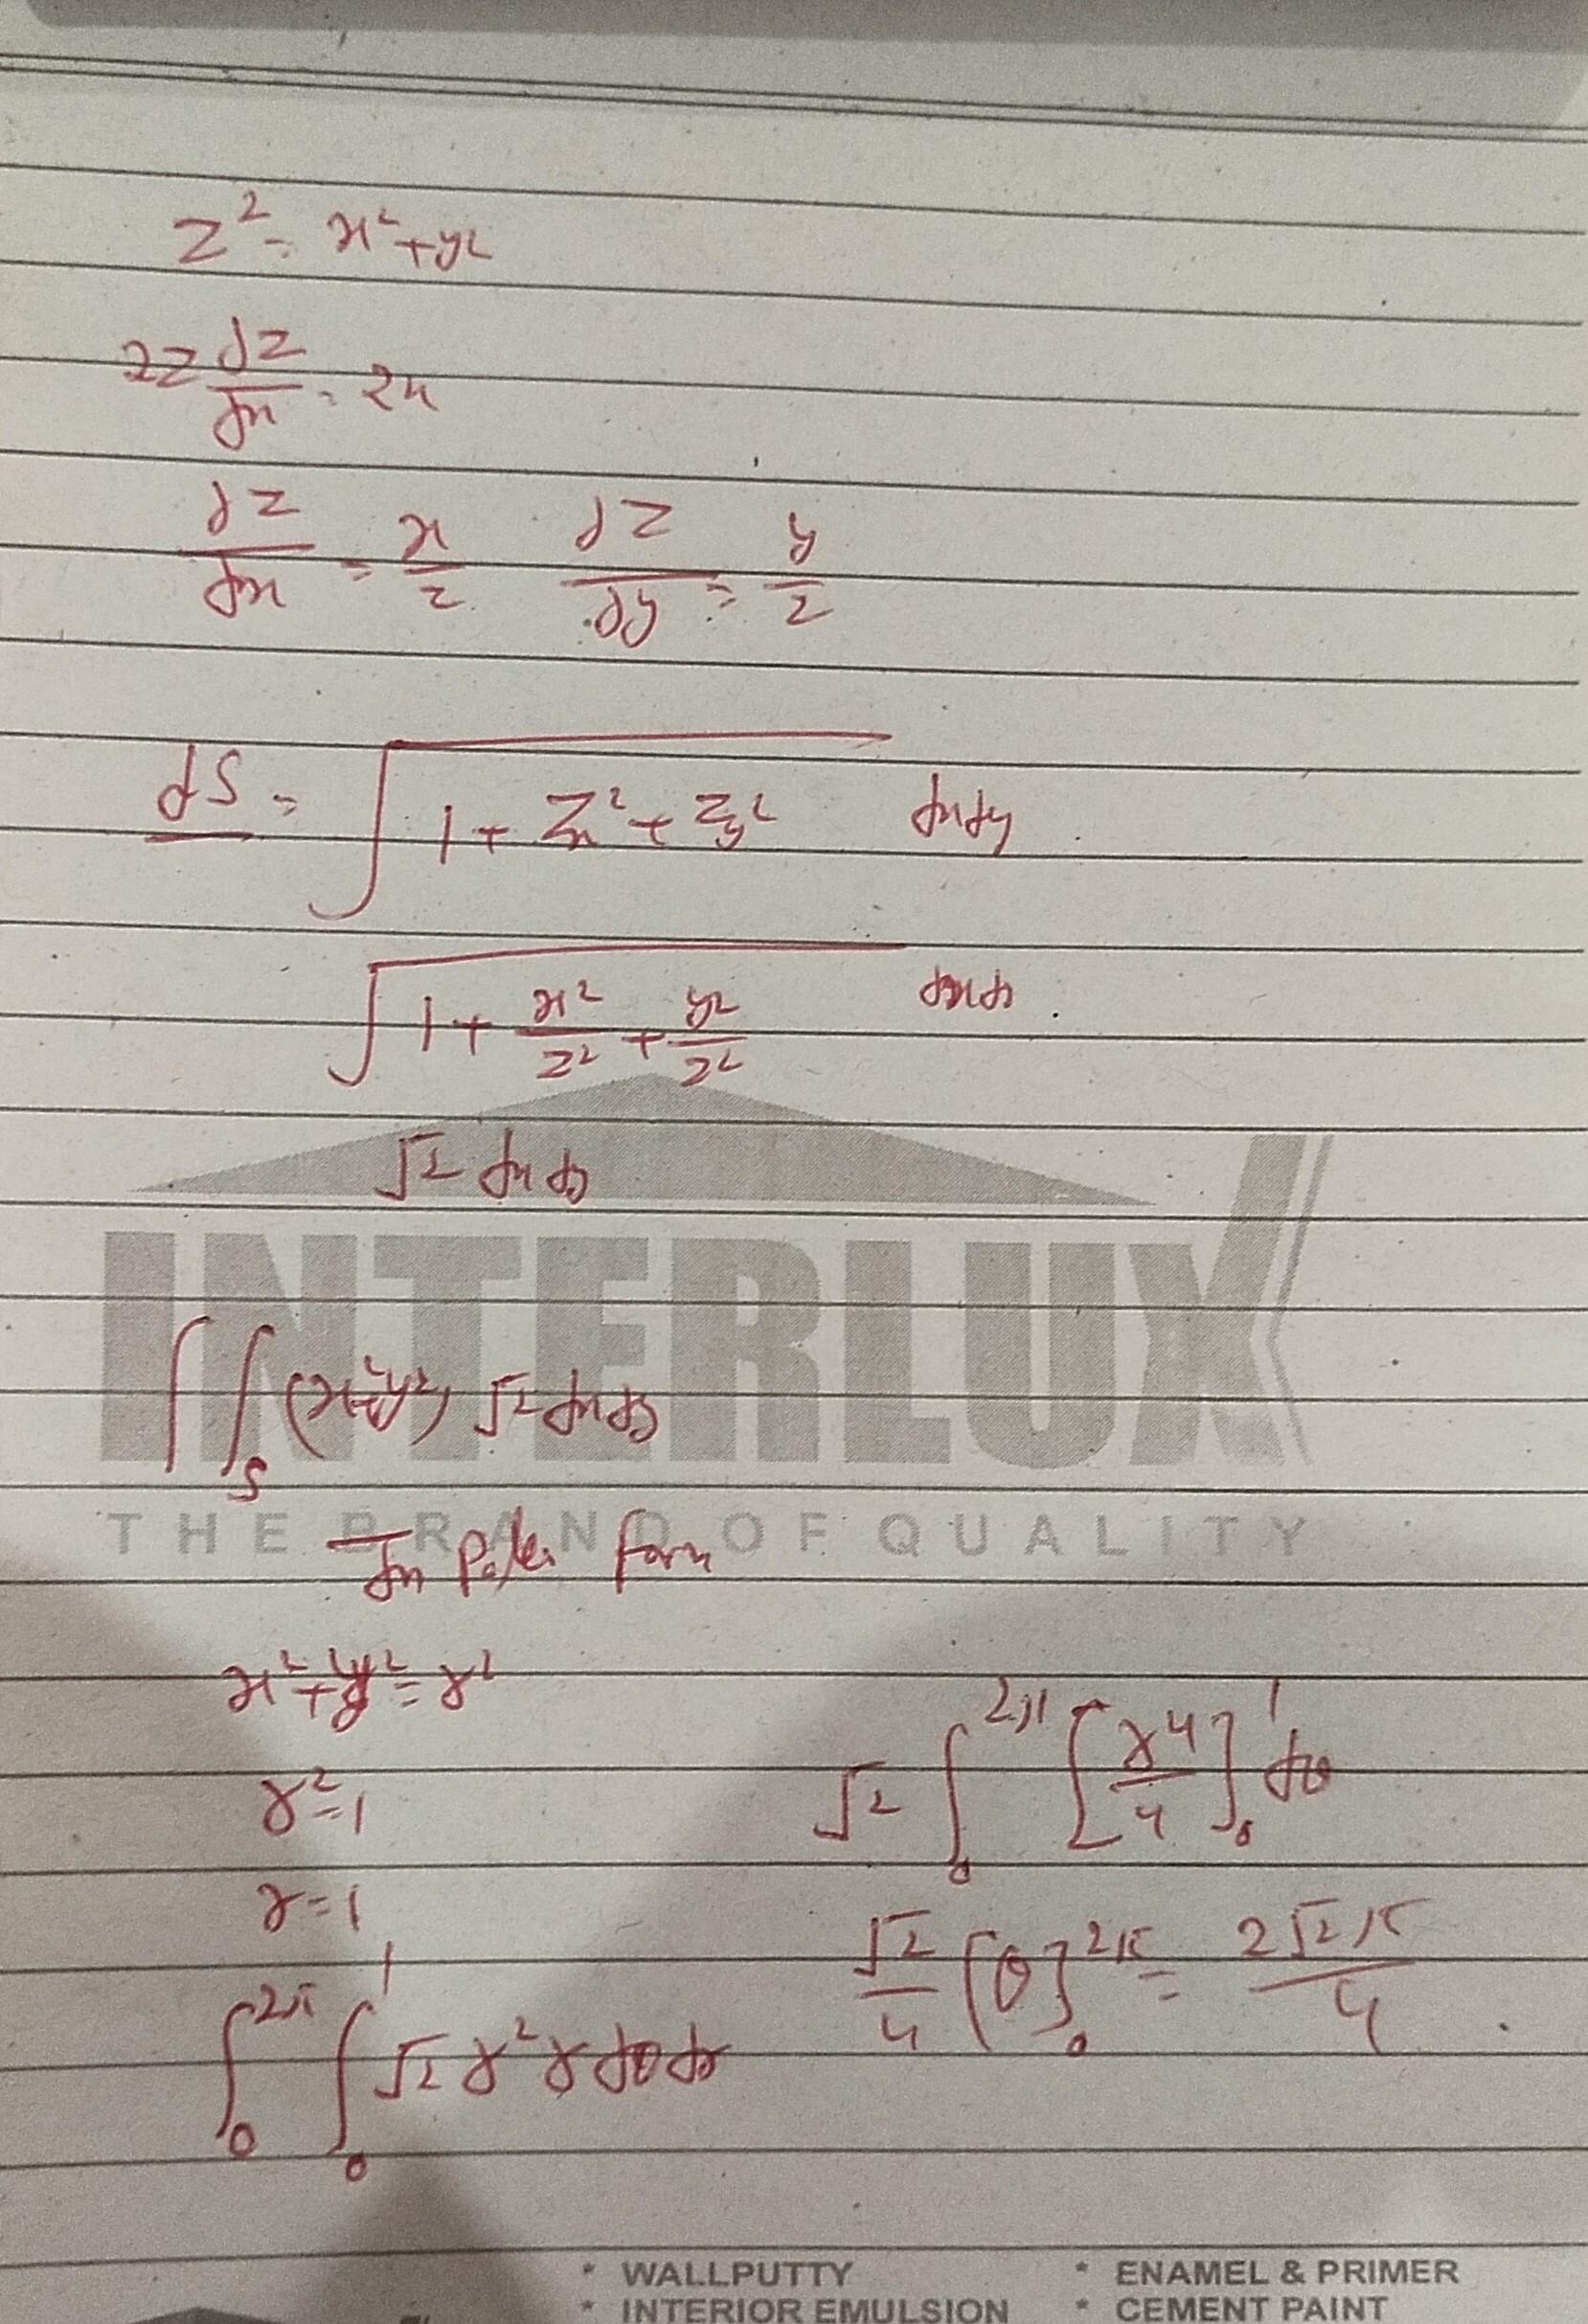 z² = x² + y²
2z ∂z/∂x = 2x
∂z/∂x = x/z ∂z/∂y = y/z
dS = √(1 + zₓ² + z_y²) dxdy
√(1 + x²/z² + y²/z²) dxdy
√2 dxdy
INTERLUX
∫∫_S (x²+y²) √2 dxdy
THE BRAND OF QUALITY
In Polar form
x² + y² = r²
r² = 1
r = 1
∫₀^2π ∫₀^1 √2 r² r dθ dr
√2 ∫₀^2π [r⁴/4]₀^1 dθ
√2/4 [θ]₀^2π = 2√2π/4
* WALLPUTTY * ENAMEL & PRIMER
* INTERIOR EMULSION * CEMENT PAINT